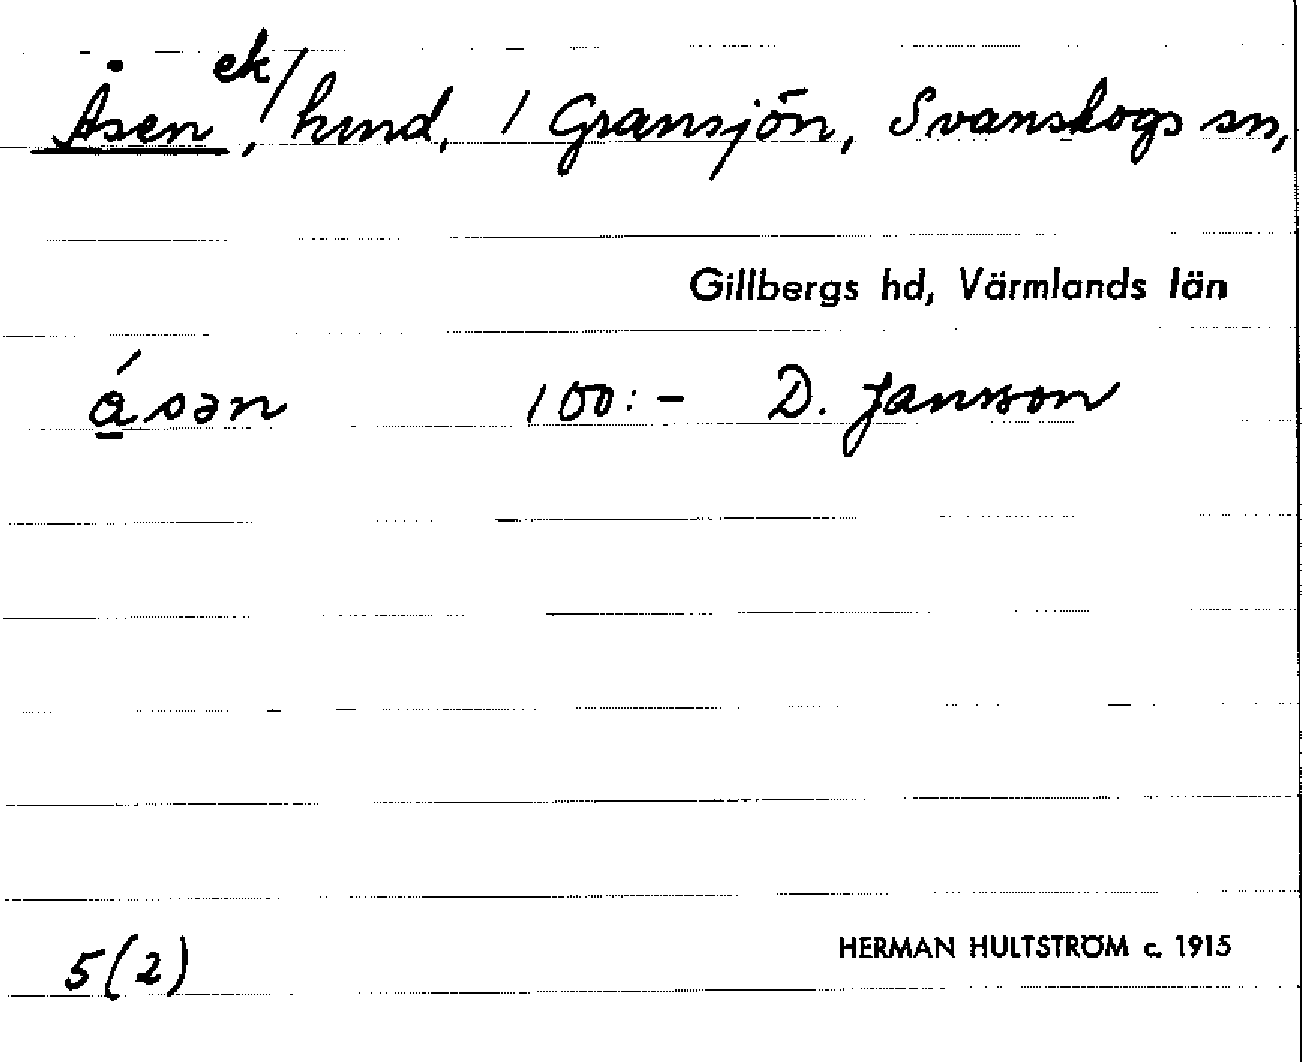 Åsen, ek/ hmd, 1 Gransjön, Svanskogs sn,
Gillbergs hd, Värmlands län
ǻsən 100:- D. Jansson
5(2)
HERMAN HULTSTRÖM c. 1915